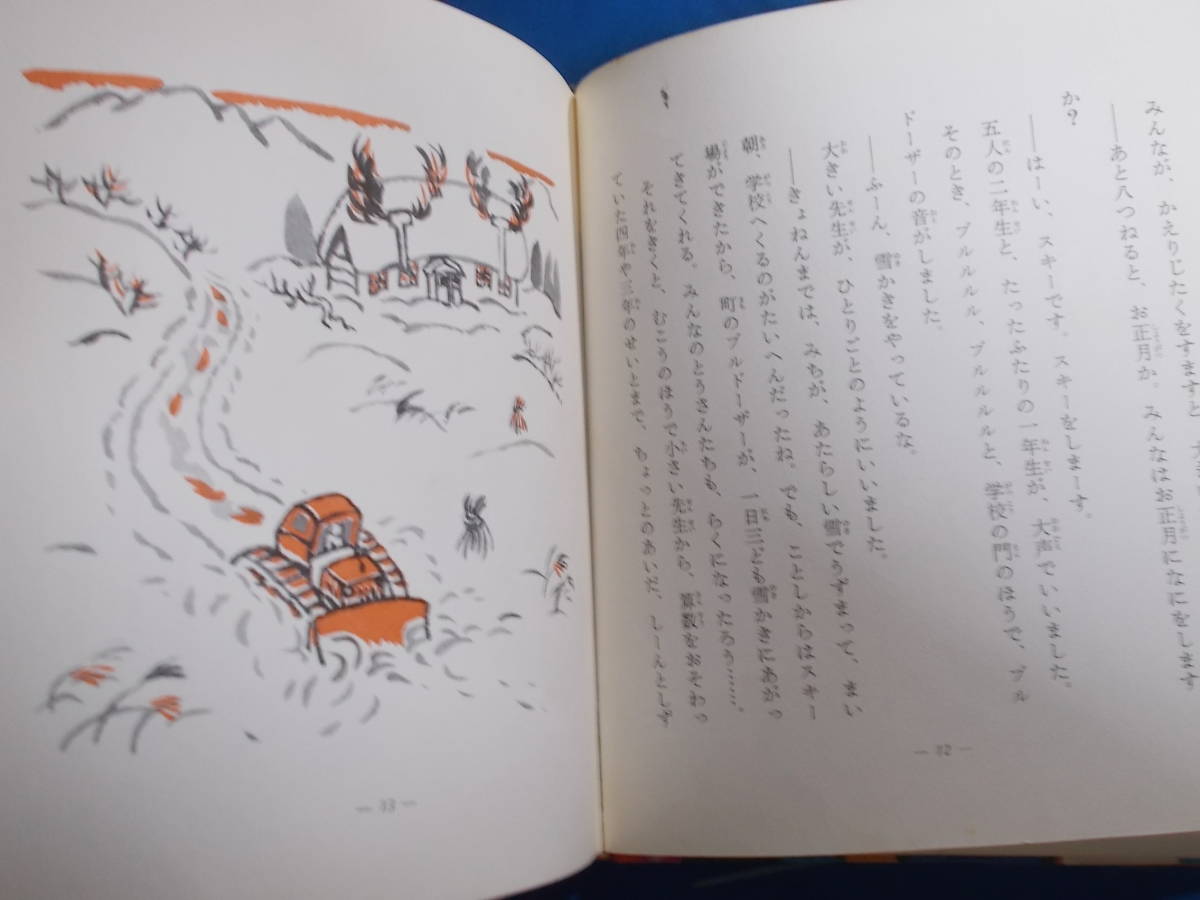 みんなが、かえりじたくをすますと、大
——あと八つねると、お正月か。みんなはお正月になにをします
か？
——はーい、スキーです。スキーをしまーす。
五人の二年生と、たったふたりの一年生が、大声でいいました。
そのとき、ブルルルル、ブルルルルと、学校の門のほうで、ブル
ドーザーの音がしました。
——ふーん、雪かきをやっているな。
大きい先生が、ひとりごとのようにいいました。
——きょねんまでは、みちが、あたらしい雪でうずまって、まい
朝、学校へくるのがたいへんだったね。でも、ことしからはスキー
場ができたから、町のブルドーザーが、一日三ども雪かきにあがっ
てきてくれる。みんなのとうさんたちも、らくになったろう……。
それをきくと、むこうのほうで小さい先生から、算数をおそわっ
ていた四年や三年のせいとまで、ちょっとのあいだ、しーんとしず
— 12 —
— 13 —